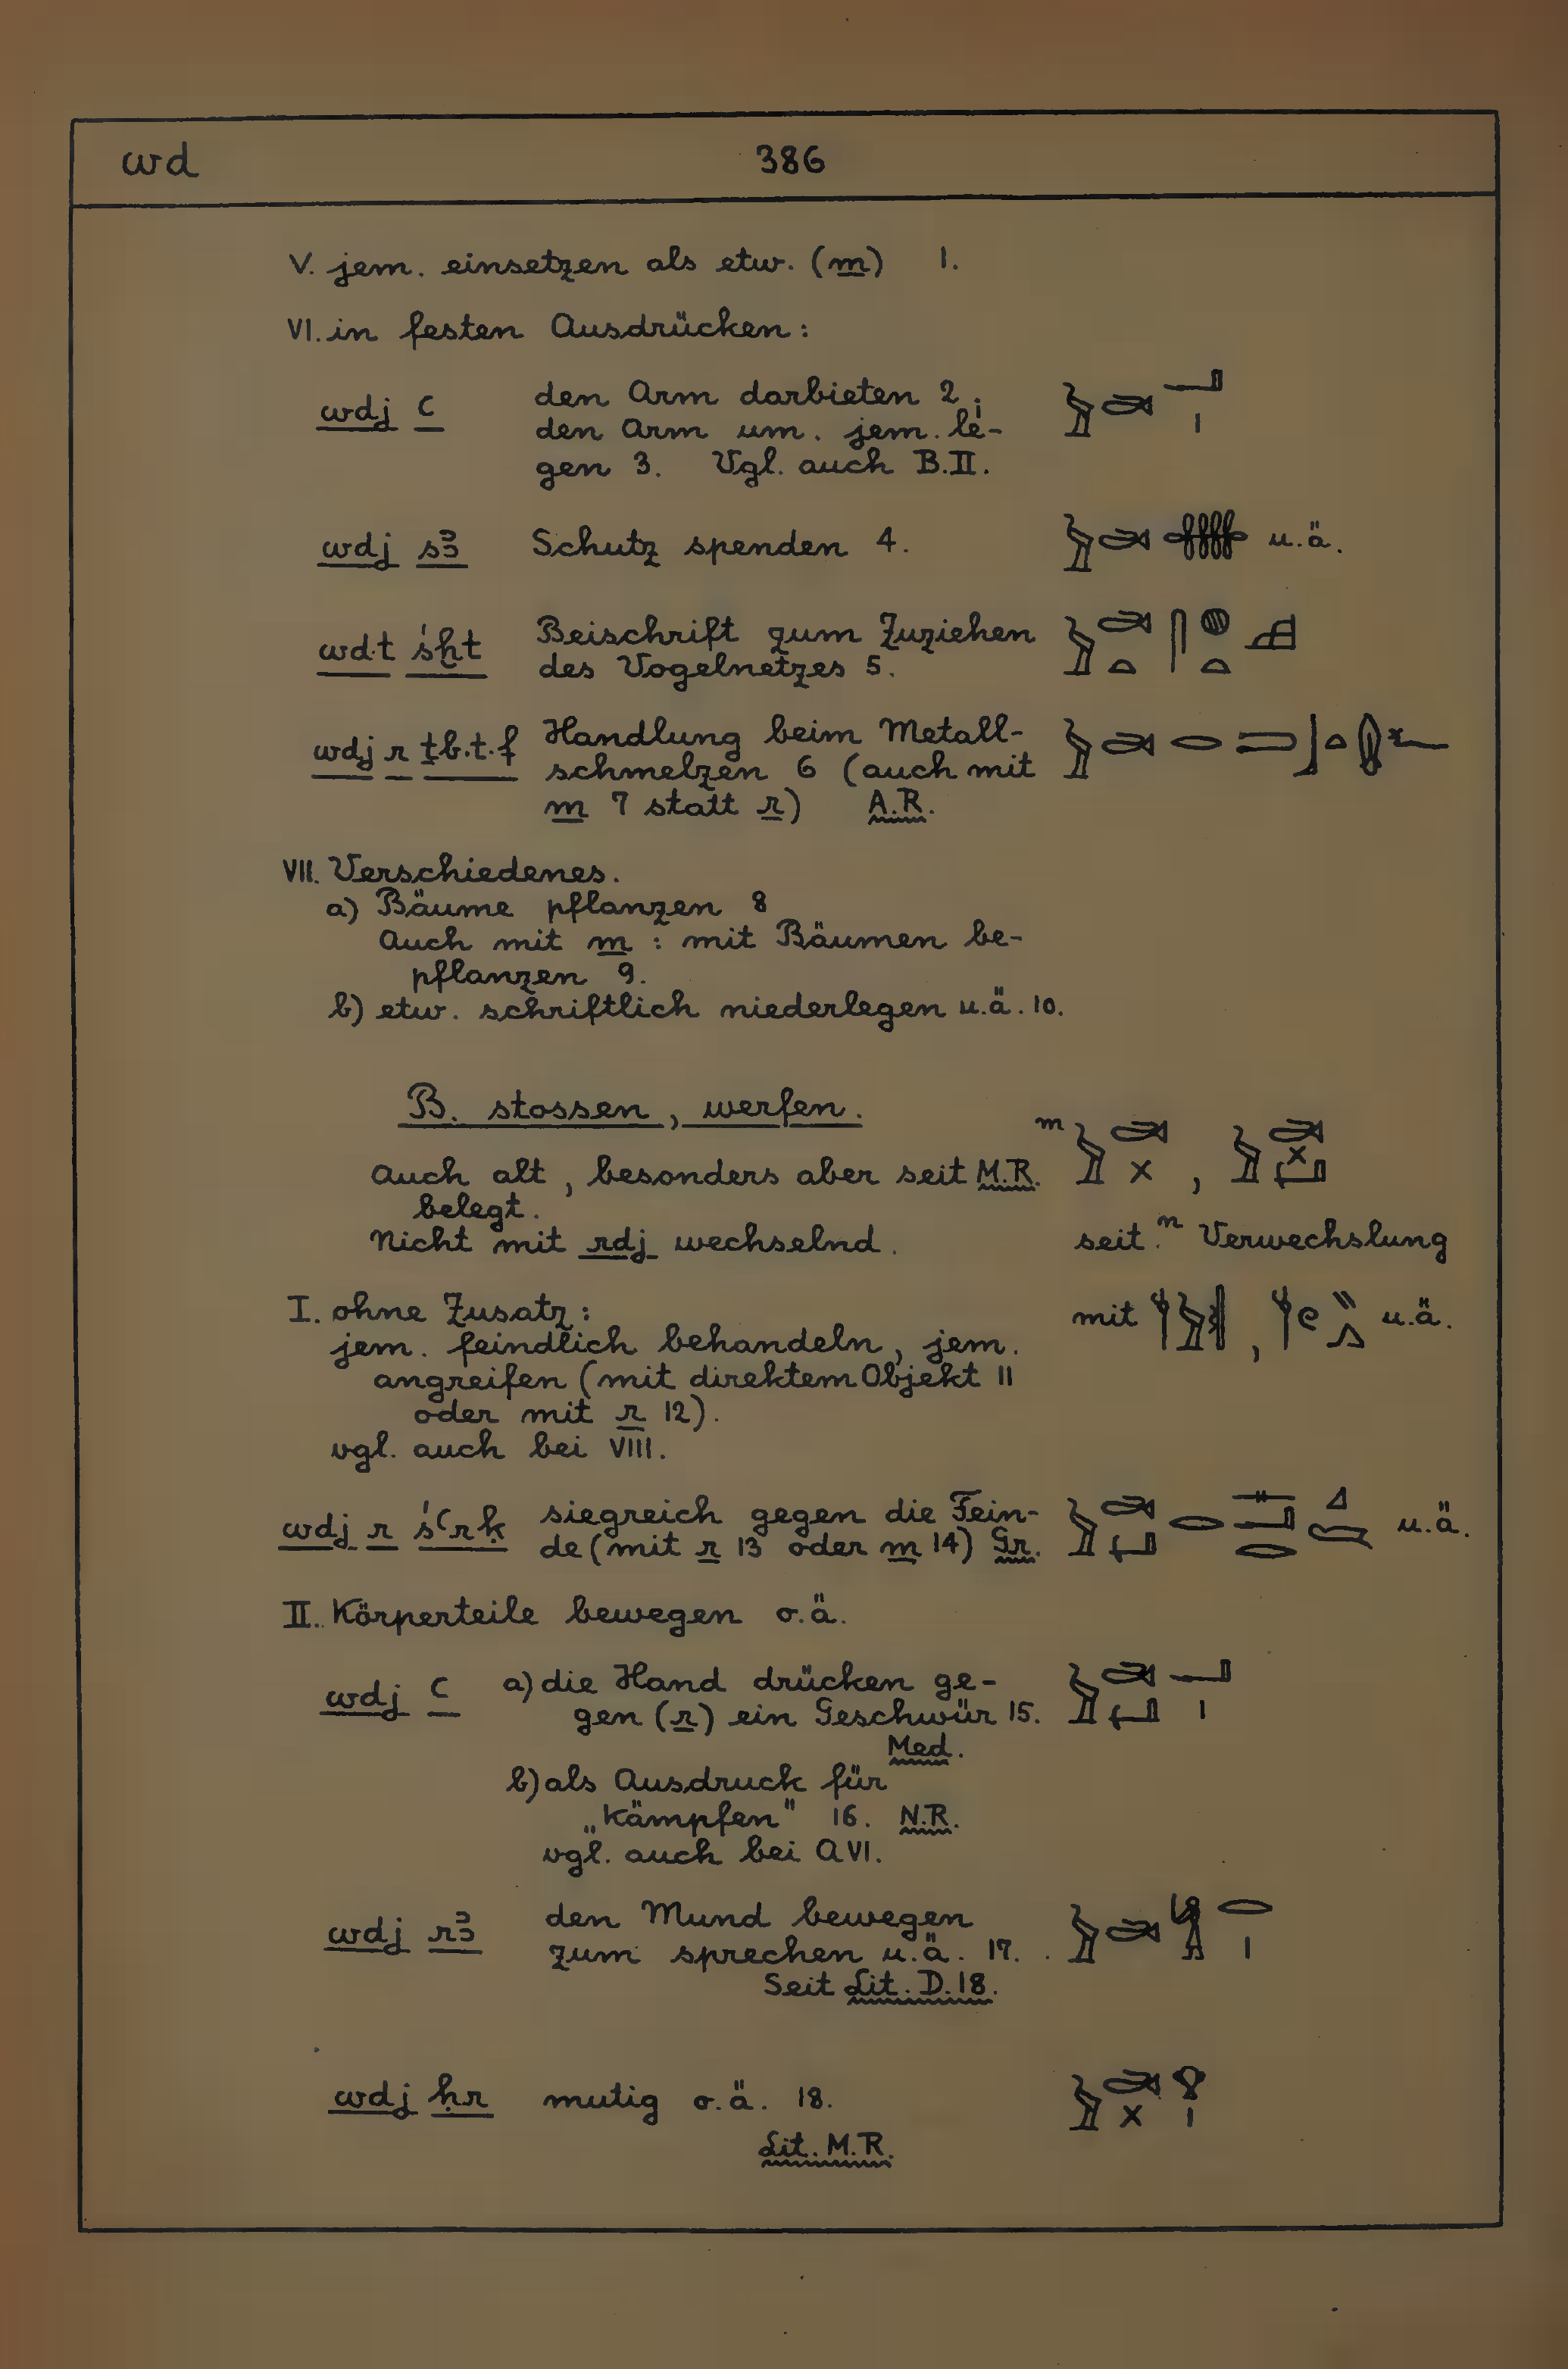 wd 386
V. jem. einsetzen als etw. (m) 1.
VI. in festen Ausdrücken:
wdj ꜥ den Arm darbieten 2;
den Arm um jem. le-
gen 3. Vgl. auch B.II.
wdj sꜣ Schutz spenden 4. u.ä.
wd·t śḫt Beischrift zum Zuziehen
des Vogelnetzes 5.
wdj r ṯb.t.f Handlung beim Metall-
schmelzen 6 (auch mit
m 7 statt r) A.R.
VII. Verschiedenes.
a) Bäume pflanzen 8
Auch mit m : mit Bäumen be-
pflanzen 9.
b) etw. schriftlich niederlegen u.ä. 10.
B. stossen, werfen.
Auch alt, besonders aber seit M.R. m ,
belegt.
Nicht mit rdj wechselnd. seit n Verwechslung
I. ohne Zusatz: mit , u.ä.
jem. feindlich behandeln, jem.
angreifen (mit direktem Objekt 11
oder mit r 12).
vgl. auch bei VIII.
wdj r śꜥrḳ siegreich gegen die Fein-
de (mit r 13 oder m 14) Gr. u.ä.
II. Körperteile bewegen o.ä.
wdj ꜥ a) die Hand drücken ge-
gen (r) ein Geschwür 15.
Med.
b) als Ausdruck für
„Kämpfen" 16. N.R.
vgl. auch bei A VI.
wdj rꜣ den Mund bewegen
zum sprechen u.ä. 17.
Seit Lit. D. 18.
wdj ḥr mutig o.ä. 18.
Lit. M.R.